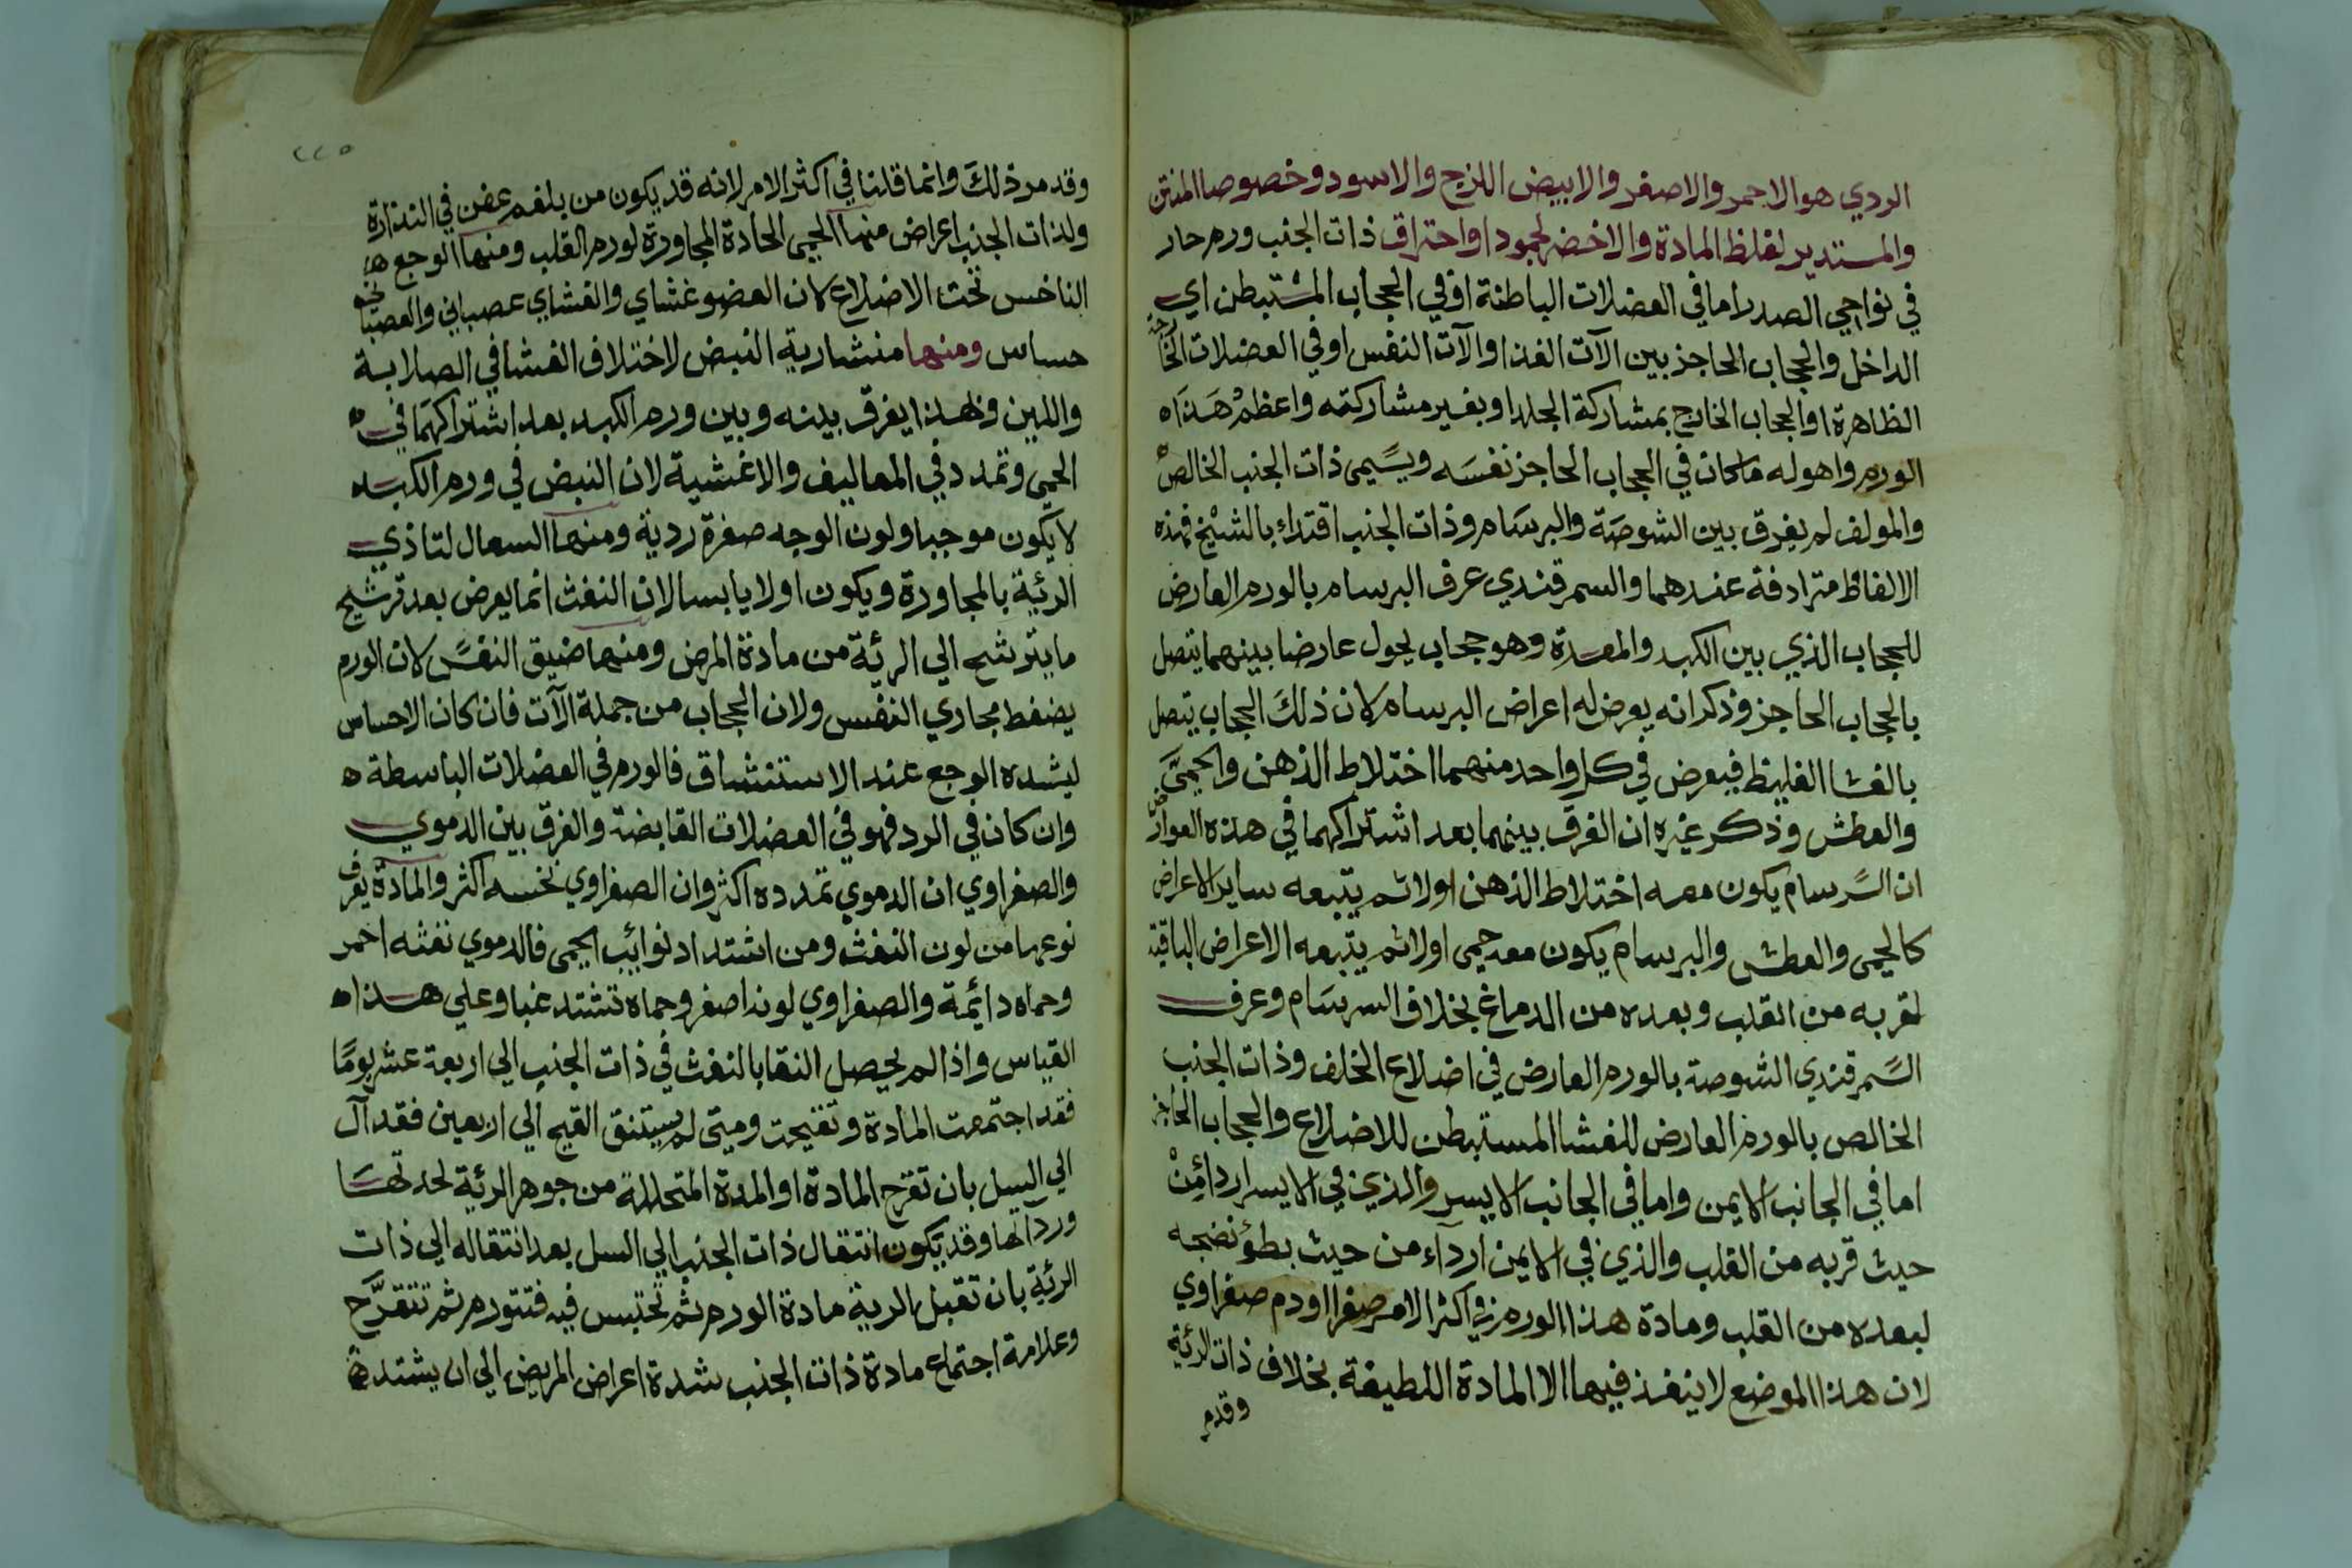 الردي هو الاحمر والاصفر والابيض اللزج والاسود وخصوصا المنتن
والمستدير لغلظ المادة والاخضر لجمود او احتراق ذات الجنب ورم حار
في نواحي الصدر اما في العضلات الباطنة او في الحجاب المستبطن اي
الداخل والحجاب الحاجز بين الآت الغذا والآت النفس او في العضلات الخارجة
الظاهرة او الحجاب الخارج بمشاركة الجلد او بغير مشاركته واعظم هَذَا
الورم واهوله ما كان في الحجاب الحاجز نفسَه ويسمى ذات الجنب الخالص
والمولف لم يفرق بين الشوصَة والبرسَام وذات الجنب اقتداء بالشيخ فهذه
الالفاظ مترادفة عندهما والسمرقندي عرف البرسام بالورم العارض
للحجاب الذي بين الكبد والمعدة وهو حجاب يحول عارضا بينهما يتصل
بالحجاب الحاجز وذكر انه يعرض له اعراض البرسام لان ذلكَ الحجاب يتصل
بالغشا الغليظ فيعرض في كل واحد منهما اختلاط الذهن والحمىَّ
والعطش وذكر غيره ان الفرق بينهما بعد اشتراكهما في هذه العوارض
ان السَرسام يكون معه اختلاط الذهن اولا ثم يتبعه ساير الاعراض
كالحمى والعطش والبرسام يكون معه حمى اولا ثم يتبعه الاعراض الباقية
لقربه من القلب وبعده من الدماغ بخلاف السرسَام وعرف
السَمرقندي الشوصة بالورم العارض في اضلاع الخلف وذات الجنب
الخالص بالورم العارض للغشا المستبطن للاضلاع والحجاب الحاجز
اما في الجانب الايمن واما في الجانب الايسر والذي في الايسر اردا مِنْ
حيث قربه من القلب والذي في الايمن ارداء من حيث بطؤ نضجه
لبعده من القلب ومادة هذا الورم في اكثر الامر صفرا او دم صفراوي
لان هذا الموضع لا ينفذ فيها الا المادة اللطيفة بخلاف ذات الرئية
وقدم
٢٢٥
وقد مر ذلكَ وانما قلنا في اكثر الامر لانه قد يكون من بلغم عفن في الندارة
ولذات الجنب اعراض منها الحمى الحادة المجاورة لورم القلب ومنها الوجع
الناخس تحت الاضلاع لان العضو غشاي والغشاي عصباني والعصباني
حساس ومنها منشارية النبض لاختلاف الغشا في الصلابة
واللين وبهذا يفرق بينه وبين ورم الكبد بعد اشتراكهمَا في
الحمى وتمدد في المعاليف والاغشية لان النبض في ورم الكبد
لا يكون موجبا ولون الوجه صفرة ردية ومنها السعال لتاذي
الرئية بالمجاورة ويكون اولا يابسا لان النفث انما يعرض بعد ترشيح
ما يترشح الي الرئة من مادة المرض ومنها ضيق النفسَ لان الورم
يضغط مجاري النفس ولان الحجاب من جملة الآت فان كان الاحساس
لشدة الوجع عند الاستنشاق فالورم في العضلات الباسطة
وان كان في الرد فهو في العضلات القابضة والفرق بين الدموي
والصفراوي ان الدموي تمدده اكثر وان الصفراوي نخسه اكثر والمادة يعرف
نوعها من لون النفث ومن اشتداد نوايب الحمى فالدموي نفثه احمر
وحماه دائمة والصفراوي لونه اصفر وحماه تشتد غبا وعلي هذا
القياس واذا لم يحصل النقا بالنفث في ذات الجنب الي اربعة عشر يومًا
فقد اجتمعت المادة وتقيحت ومتى لم يستنق القيح الي اربعين فقد آل
الي السل بان تقرح المادة او المدة المتحللة من جوهر الرئية لحدتهَا
ورداتها وقد يكون انتقال ذات الجنب الي السل بعد انتقاله الي ذات
الرئية بان تقبل الرية مادة الورم ثم تحتبس فيه فتتورم ثم تتقرَّح
وعلامة اجتماع مادة ذات الجنب شدة اعراض المريض الي ان يشتد